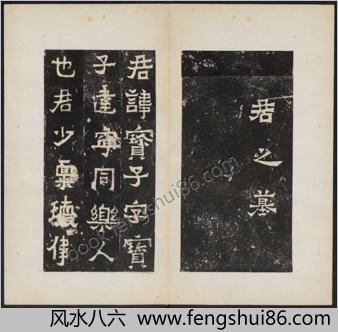 君之墓
君諱寶子字寶
子建寧同樂人
也君少稟瓌偉
風水八六 www.fengshui86.com